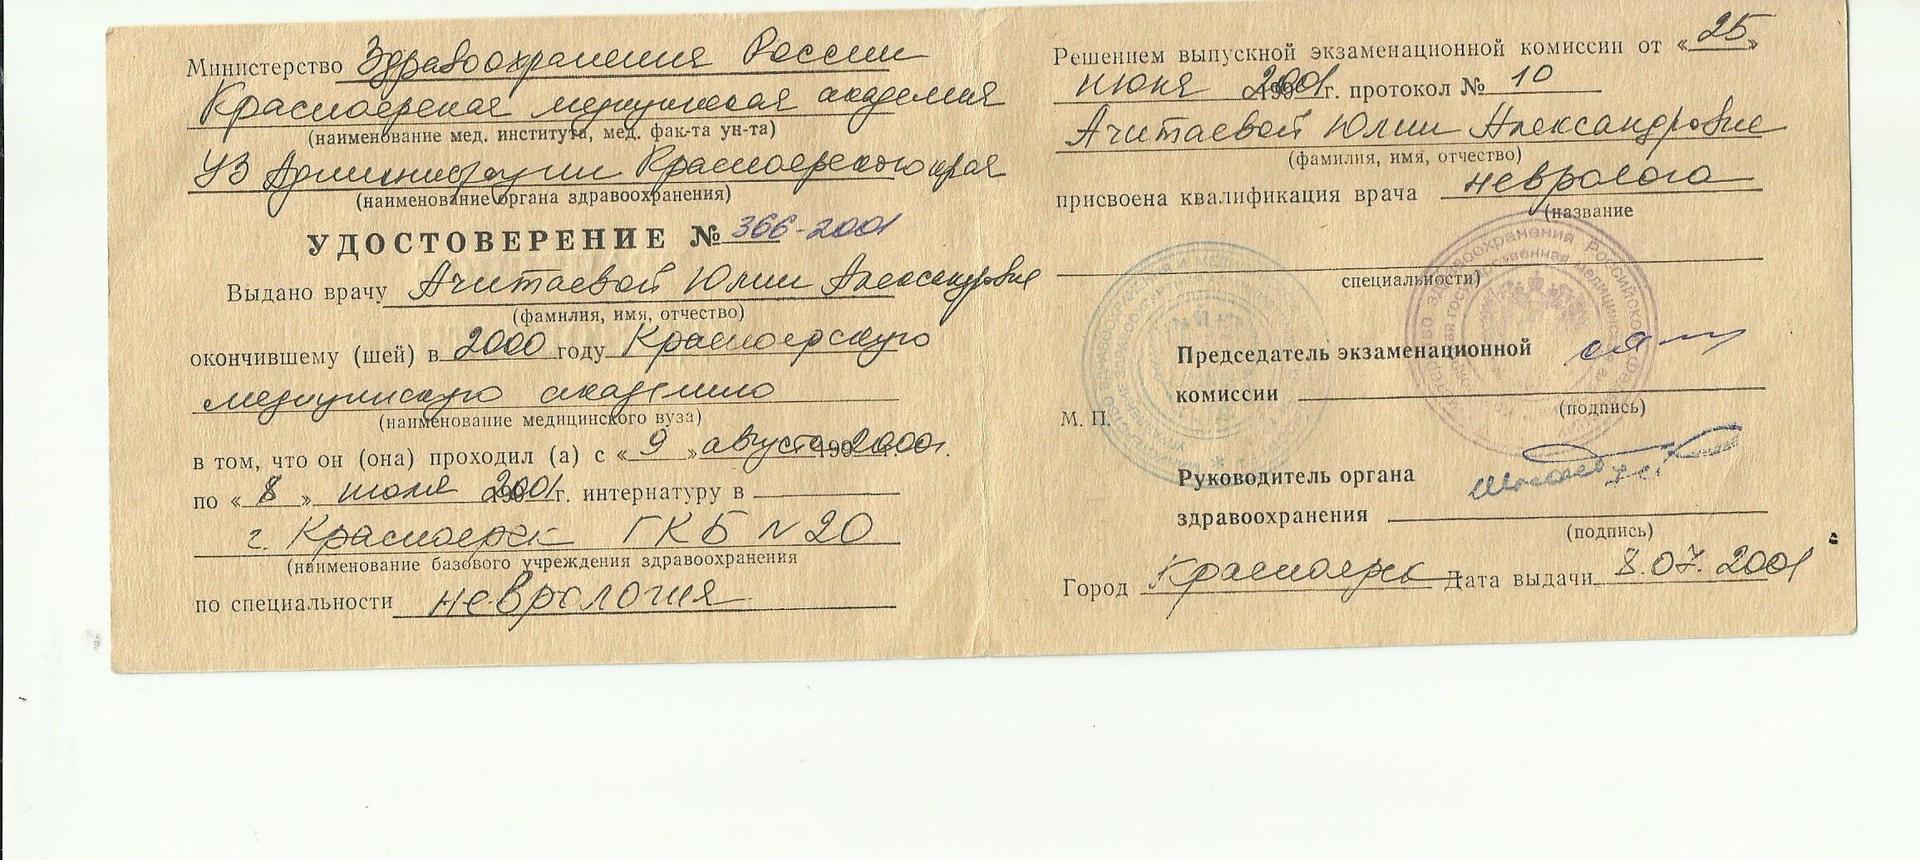 Министерство Здравоохранения России
Красноярская медицинская академия
(наименование мед. института, мед. фак-та ун-та)
УЗ Администрации Красноярского края
(наименование органа здравоохранения)
УДОСТОВЕРЕНИЕ № 366-2001
Выдано врачу Ачитаевой Юлии Александровне
(фамилия, имя, отчество)
окончившему (шей) в 2000 году Красноярскую
медицинскую академию
(наименование медицинского вуза)
в том, что он (она) проходил (а) с «9» августа 2000г.
по «8» июля 2001г. интернатуру в
г. Красноярск ГКБ N 20
(наименование базового учреждения здравоохранения
по специальности неврология
Решением выпускной экзаменационной комиссии от «25»
июня 2001г. протокол № 10
Ачитаевой Юлии Александровне
(фамилия, имя, отчество)
присвоена квалификация врача невролога
(название
специальности)
Председатель экзаменационной
комиссии
(подпись)
М. П.
Руководитель органа
здравоохранения
(подпись)
Город Красноярск Дата выдачи 8.07.2001